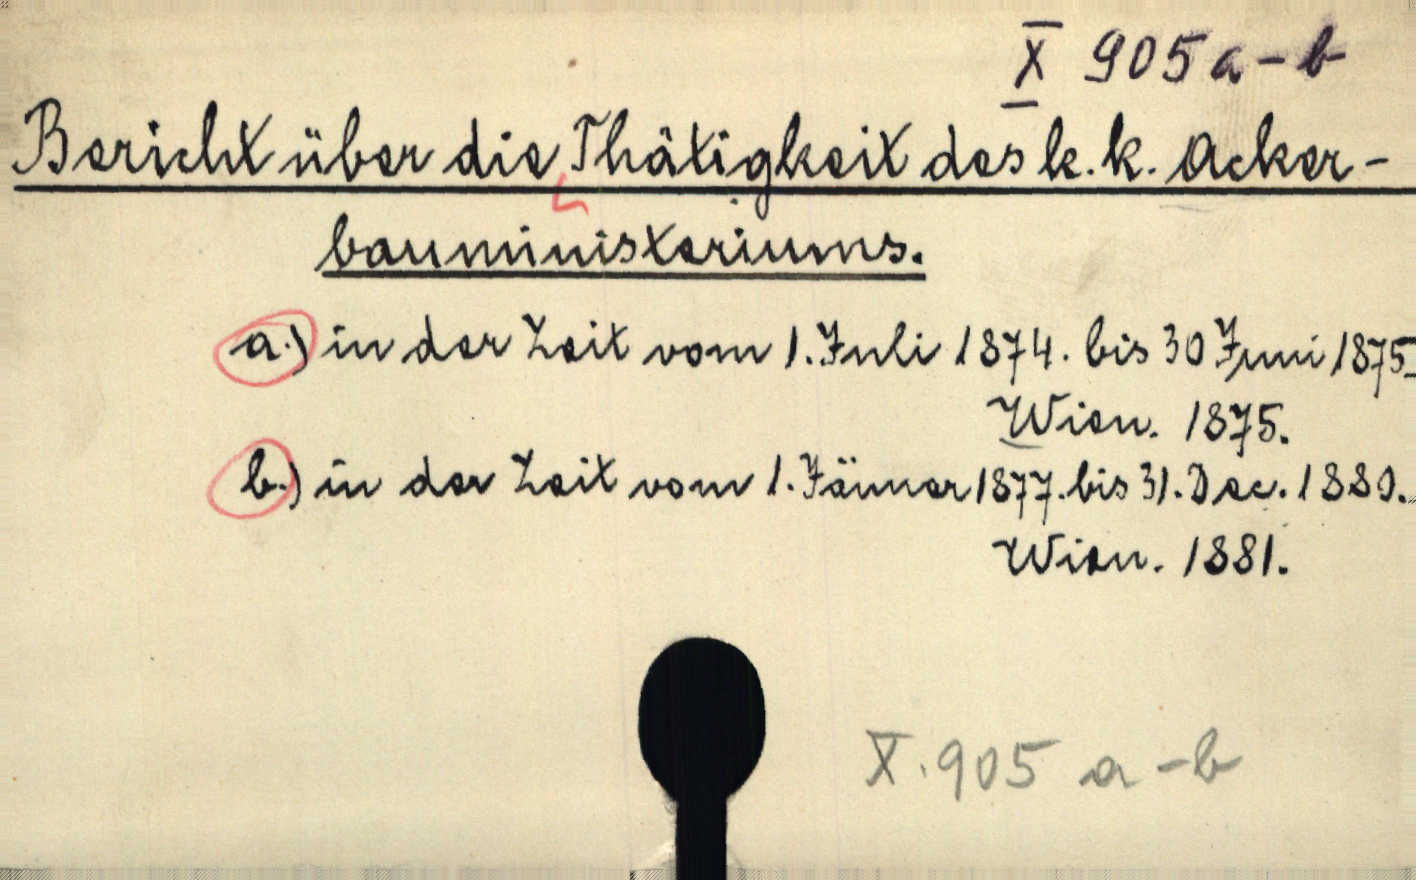 X 905 a-b
Bericht über die Thätigkeit des k. k. Acker-
bauministeriums.
a.) in der Zeit vom 1. Juli 1874. bis 30 Juni 1875.
Wien. 1875.
b.) in der Zeit vom 1. Jänner 1877. bis 31. Dec. 1880.
Wien. 1881.
X. 905 a-b